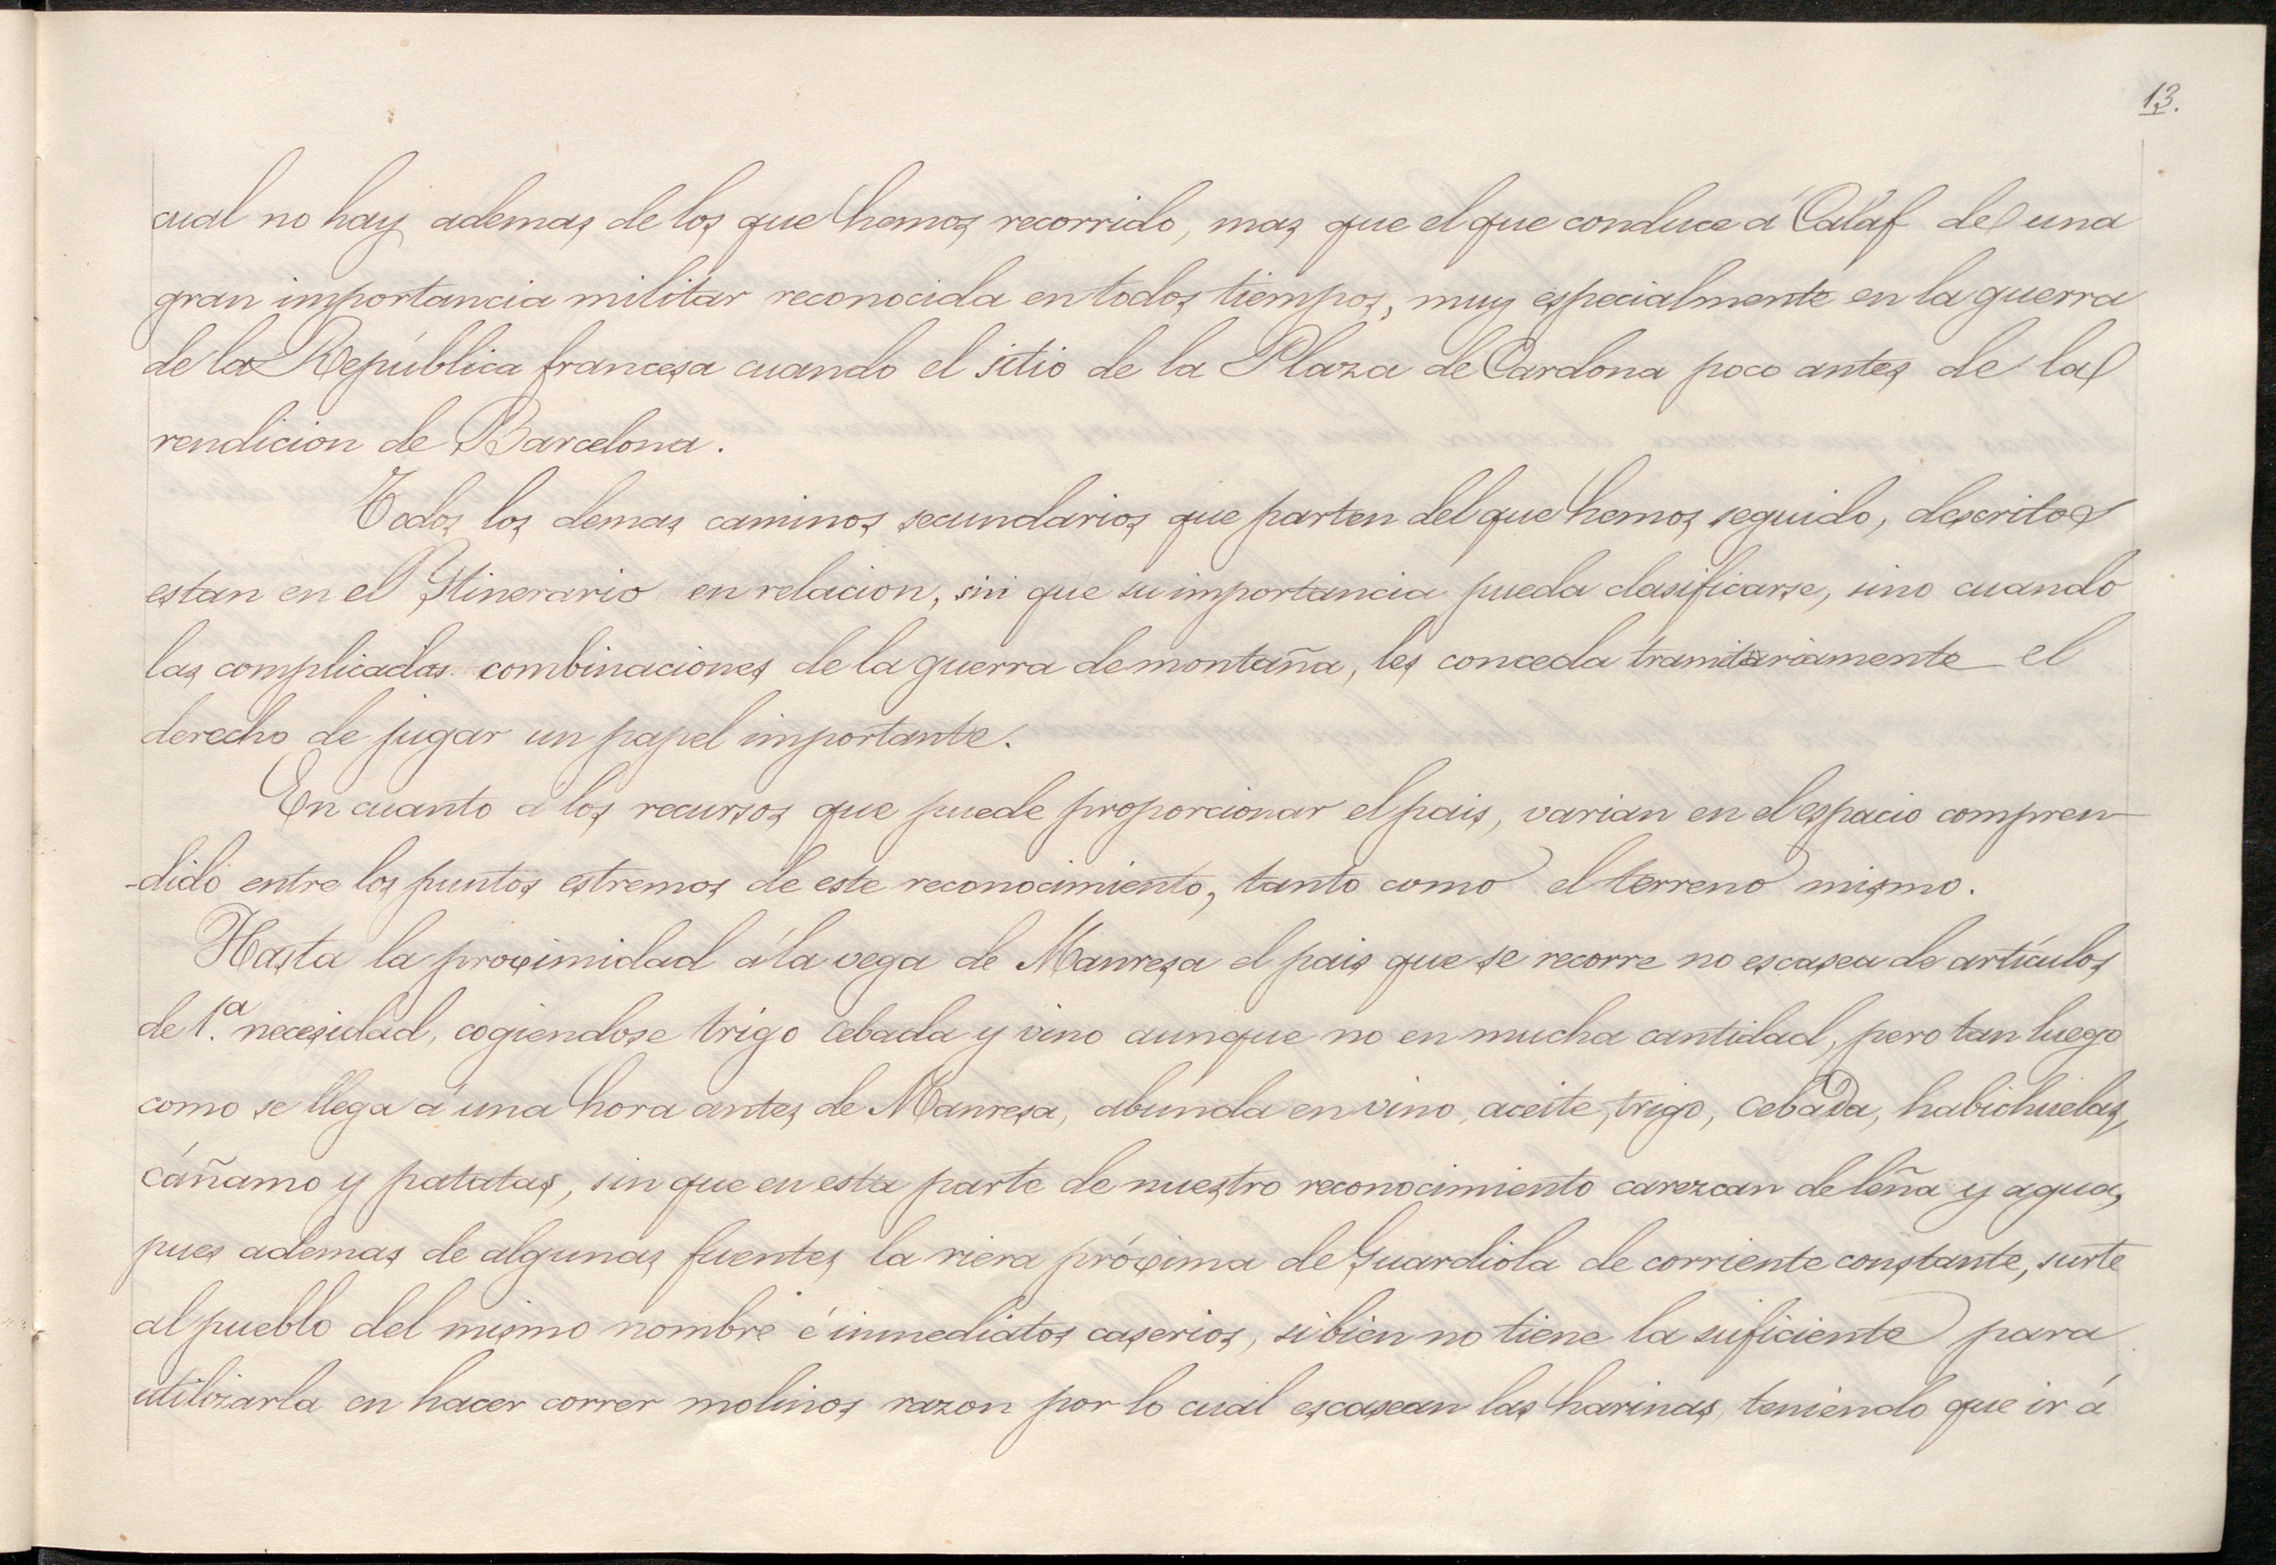 13.
cual no hay ademas de los que hemos recorrido, mas que el que conduce á Calaf de una
gran importancia militar reconocida en todos tiempos, muy especialmente en la guerra
de la República francesa cuando el sitio de la Plaza de Cardona poco antes de la
rendicion de Barcelona.
Todos los demas caminos secundarios que parten del que hemos seguido, descritos
estan en el Itinerario en relacion, sin que su importancia pueda clasificarse, sino cuando
las complicadas combinaciones de la guerra de montaña, les conceda tramitariamente el
derecho de jugar un papel importante.
En cuanto á los recursos que puede proporcionar el pais, varian en el espacio compren-
-dido entre los puntos estremos de este reconocimiento, tanto como el terreno mismo.
Hasta la proximidad á la vega de Manresa el pais que se recorre no escasea de artículos
de 1.ª necesidad, cogiendose trigo cebada y vino aunque no en mucha cantidad, pero tan luego
como se llega á una hora antes de Manresa, abunda en vino, aceite, trigo, cebada, habichuelas,
cáñamo y patatas, sin que en esta parte de nuestro reconocimiento carezcan de leña y agua,
pues ademas de algunas fuentes la riera próxima de Guardiola de corriente constante, surte
al pueblo del mismo nombre é inmediatos caserios, si bien no tiene la suficiente para
utilizarla en hacer correr molinos razon por lo cual escasean las harinas, teniendo que ir á